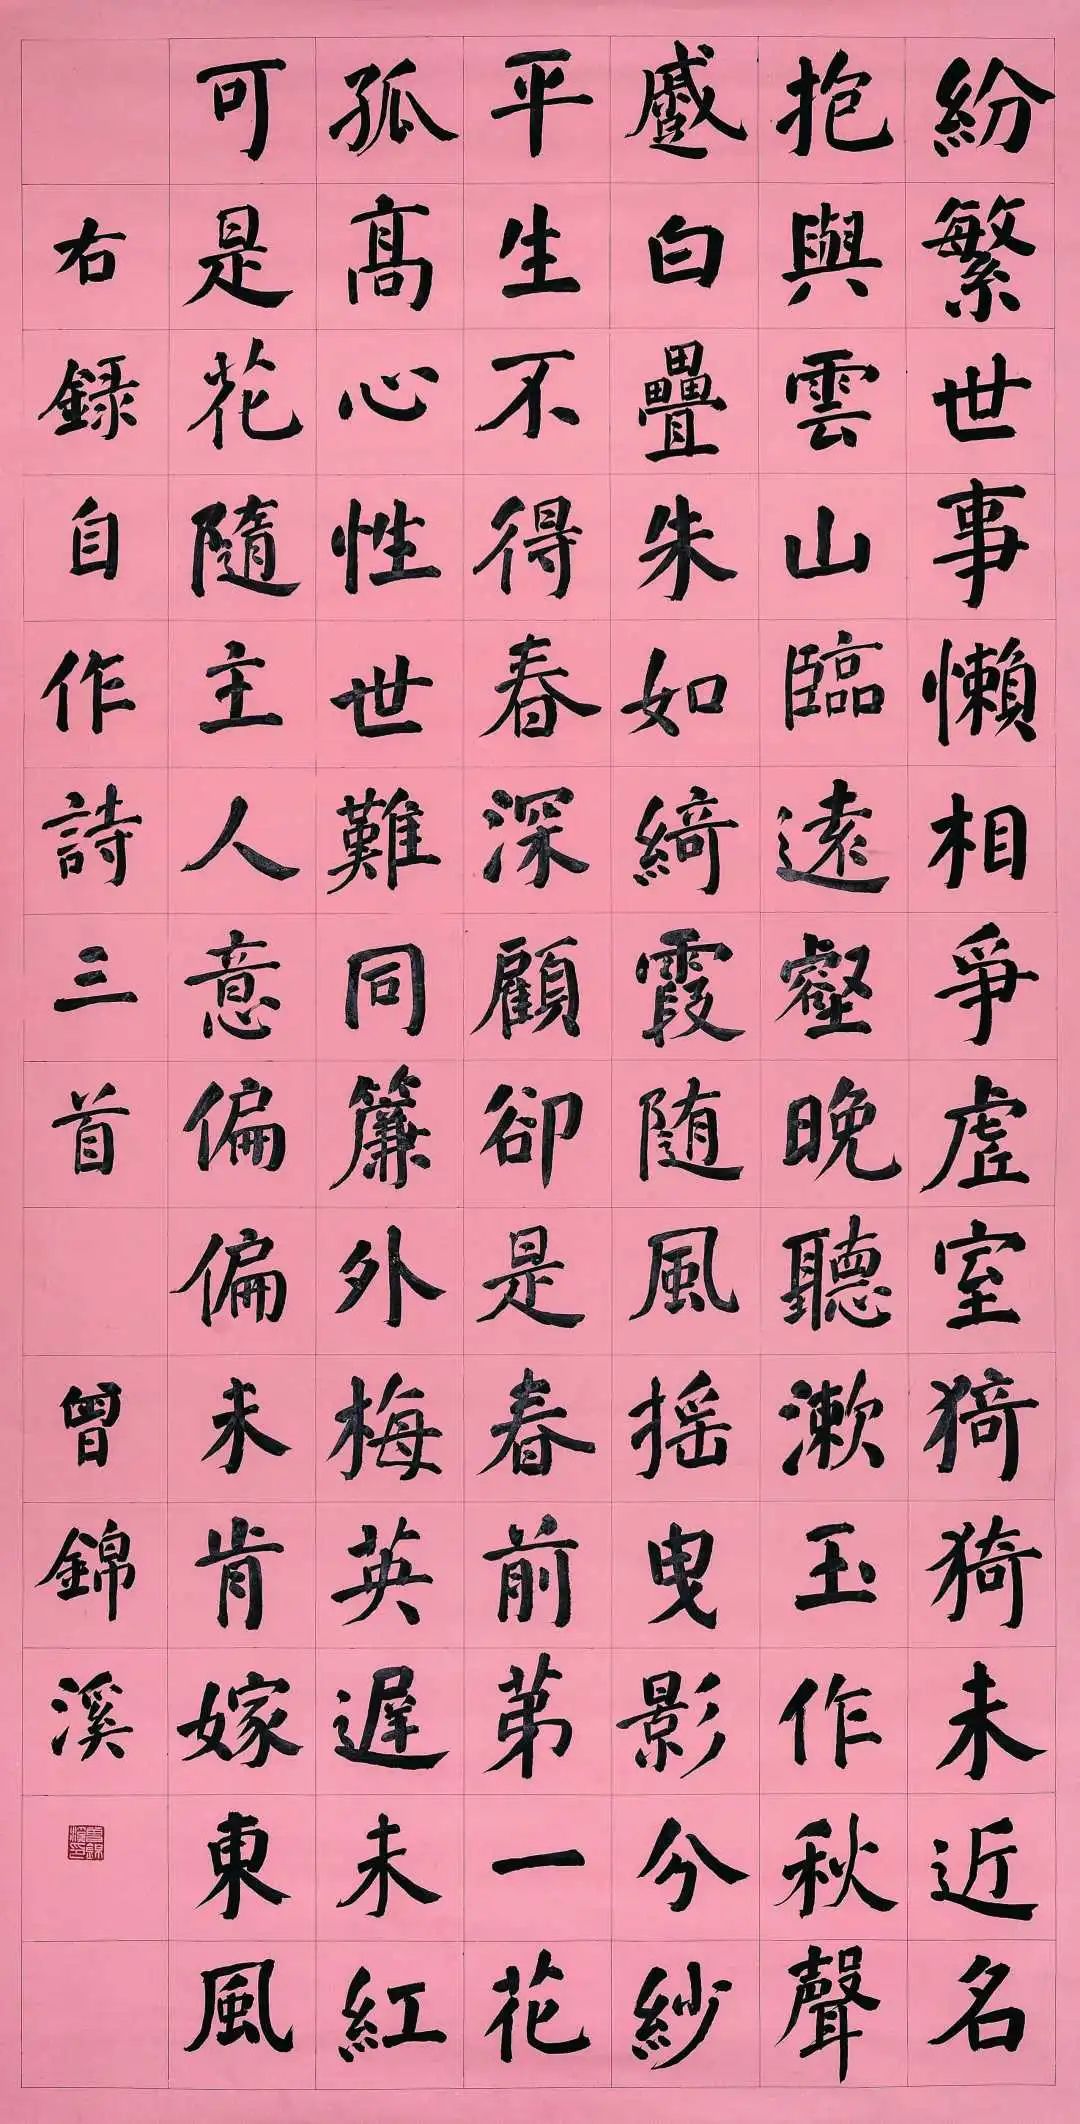 紛繁世事懶相爭虛室猗猗未近名
抱與雲山臨遠壑晚聽漱玉作秋聲
蹙白疊朱如綺霞随風摇曳影分紗
平生不得春深顧卻是春前第一花
孤高心性世難同簾外梅英遲未紅
可是花隨主人意偏偏未肯嫁東風
右録自作詩三首 曾錦溪